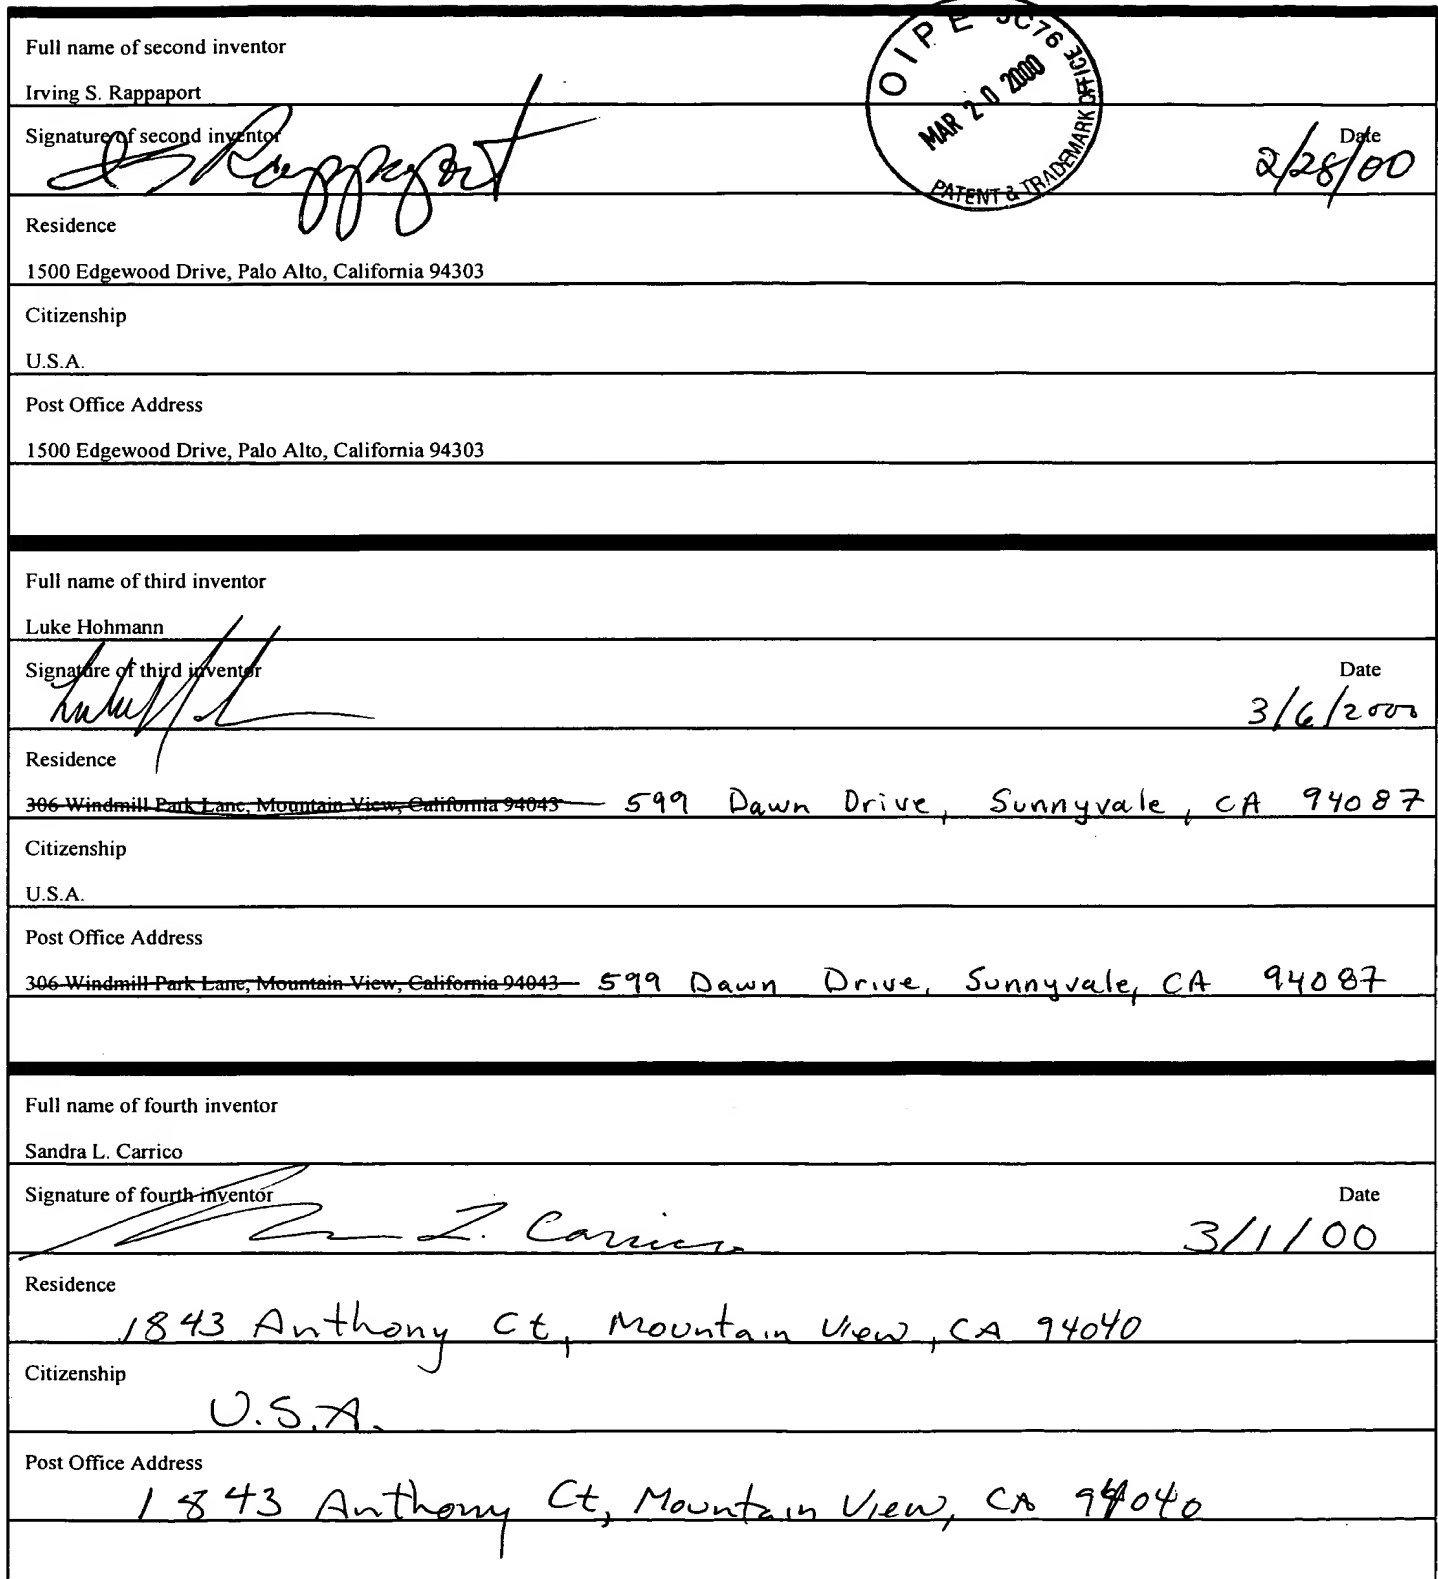 Full name of second inventor
Irving S. Rappaport
OIPE JC76
MAR 20 2000
PATENT & TRADEMARK OFFICE
Signature of second inventor Date
IS Rappaport 2/28/00
Residence
1500 Edgewood Drive, Palo Alto, California 94303
Citizenship
U.S.A.
Post Office Address
1500 Edgewood Drive, Palo Alto, California 94303
Full name of third inventor
Luke Hohmann
Signature of third inventor Date
3/6/2000
Residence
306 Windmill Park Lane, Mountain View, California 94043 599 Dawn Drive, Sunnyvale, CA 94087
Citizenship
U.S.A.
Post Office Address
306 Windmill Park Lane, Mountain View, California 94043 599 Dawn Drive, Sunnyvale, CA 94087
Full name of fourth inventor
Sandra L. Carrico
Signature of fourth inventor Date
L. Carrico 3/1/00
Residence
1843 Anthony Ct, Mountain View, CA 94040
Citizenship
U.S.A.
Post Office Address
1843 Anthony Ct, Mountain View, CA 94040